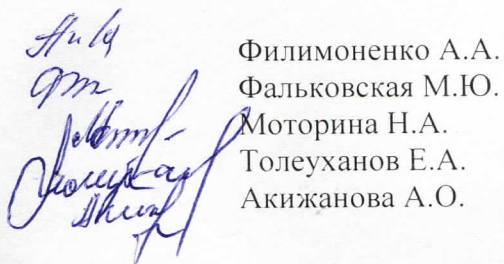 Филимоненко А.А.
Фальковская М.Ю.
Моторина Н.А.
Толеуханов Е.А.
Акижанова А.О.